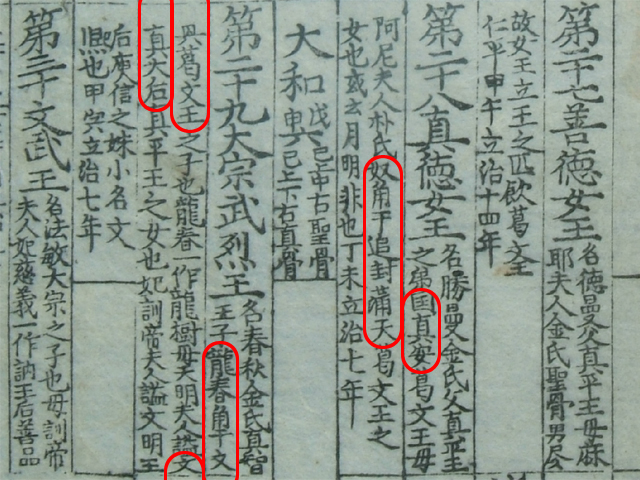 第二十七善德女王 名德曼父真平王母麻
耶夫人金氏聖骨男尽
故女王立王之匹飮葛文王
仁平甲午立治十四年
第二十八真德女王 名勝曼金氏父真平王
之弟国真安葛文王母
阿尼夫人朴氏奴角干追封滿天葛文王之
女也或云月明非也丁未立治七年
大和戊申六 已上中古聖骨
已下下古真骨
第二十九太宗武烈王 名春秋金氏真智
王子龍春角干文
興葛文王之子也龍春一作龍樹母天明夫人諡文
真大后真平王之女也妃訓帝夫人諡文明王
后庾信之妹小名文
熙也甲寅立治七年
第三十文武王 名法敏太宗之子也母訓帝
夫人妃慈義一作訥王后善品